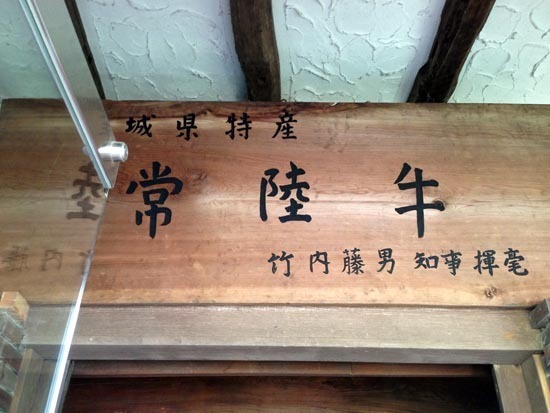 城県特産
常陸牛
竹内藤男知事揮毫